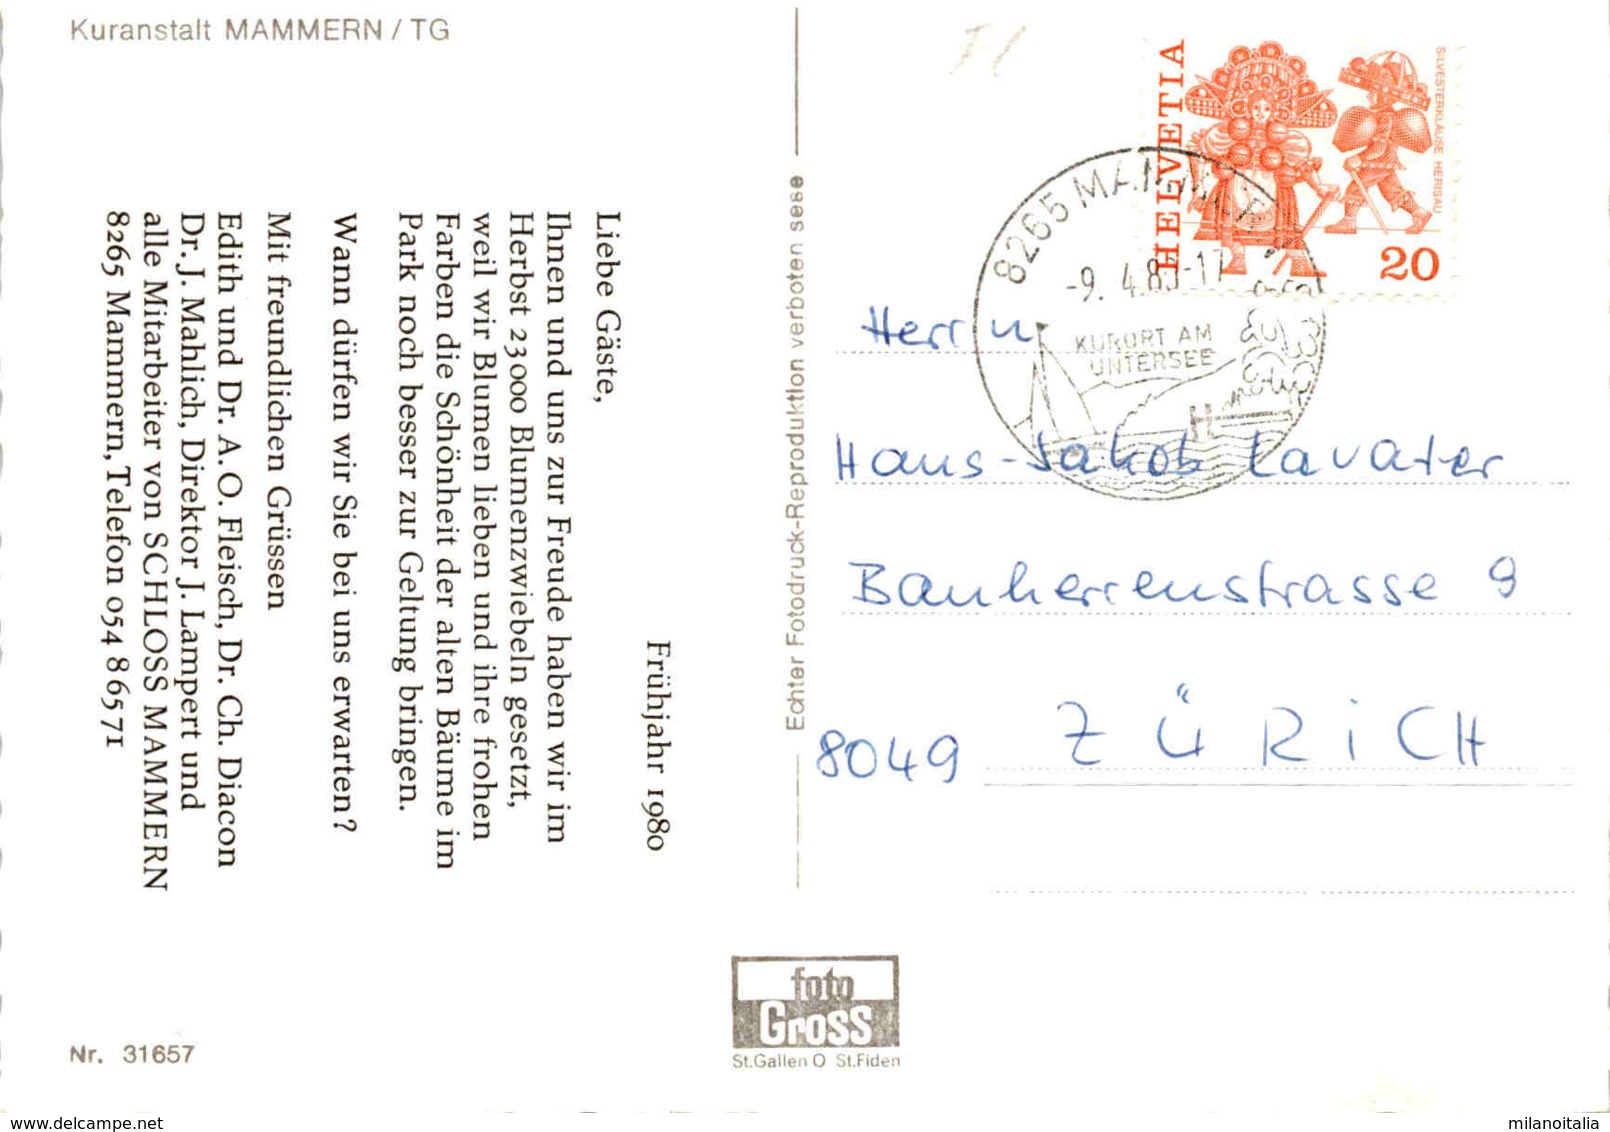 Kuranstalt MAMMERN / TG
Frühjahr 1980
Liebe Gäste,
Ihnen und uns zur Freude haben wir im
Herbst 23 000 Blumenzwiebeln gesetzt,
weil wir Blumen lieben und ihre frohen
Farben die Schönheit der alten Bäume im
Park noch besser zur Geltung bringen.
Wann dürfen wir Sie bei uns erwarten?
Mit freundlichen Grüssen
Edith und Dr. A. O. Fleisch, Dr. Ch. Diacon
Dr. J. Mahlich, Direktor J. Lampert und
alle Mitarbeiter von SCHLOSS MAMMERN
8265 Mammern, Telefon 054 8 65 71
Nr. 31657
Echter Fotodruck-Reproduktion verboten sese
foto
Gross
St.Gallen O St.Fiden
HELVETIA
SILVESTERKLÄUSE HERISAU
20
8265 MAMMERN
-9. 4.80-17
KURORT AM
UNTERSEE
Herrn
Hans-Jakob Lavater
Bauherrenstrasse 9
8049 ZÜRiCH
delcampe.net
milanoitalia